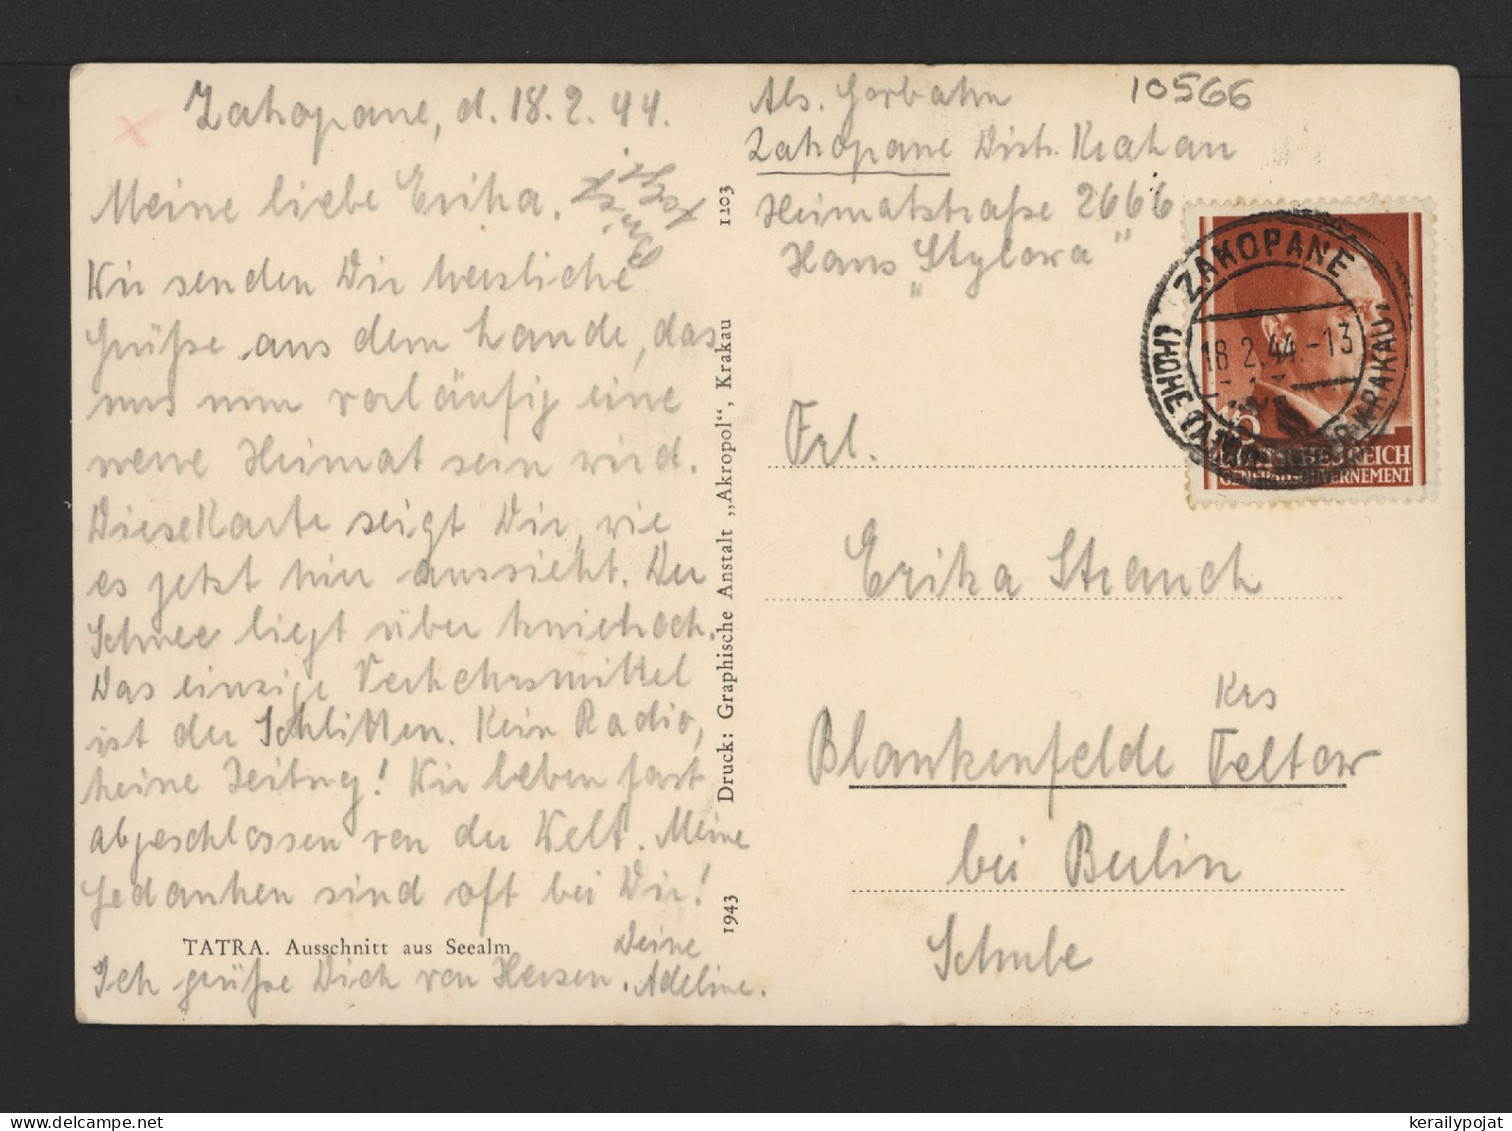 Zakopane, d. 18.2.44.
Meine liebe Erika.
Wir senden Dir herzliche
Grüße aus dem Lande, das
uns nun vorläufig eine
neue Heimat sein wird.
Diese Karte zeigt Dir, wie
es jetzt hier aussieht. Der
Schnee liegt über kniehoch.
Das einzige Verkehrsmittel
ist der Schlitten. Kein Radio,
keine Zeitung! Wir leben fast
abgeschlossen von der Welt. Meine
Gedanken sind oft bei Dir!
TATRA. Ausschnitt aus Seealm
Deine
Ich grüße Dich von Herzen. Adeline.
1943 Druck: Graphische Anstalt „Akropol“, Krakau 1203
10566
Abs. Gorbahn
Zakopane Distr. Krakau
Heimatstraße 2666
Haus „Stylowa“
ZAKOPANE
(HOHE TATRA) KRAKAU
18.2.44.-13
GROSSDEUTSCHES REICH
GENERALGOUVERNEMENT
Frl.
Erika Strauch
Krs
Blankenfelde Teltow
bei Berlin
Schule
kerailypojat.com